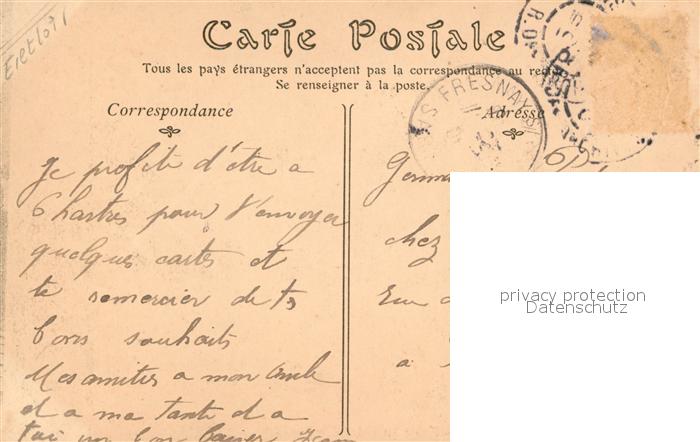 Carte Postale
Tous les pays étrangers n'acceptent pas la correspondance au recto
Se renseigner à la poste.
Correspondance
Adresse
FRESNAY
Je profite d'être a
Chartres pour t'envoyer
quelques cartes et
te remercier de tes
bons souhaits
Mes amitiés a mon oncle
et a ma tante et a
toi un bon baiser Jean
chez
a
privacy protection
Datenschutz